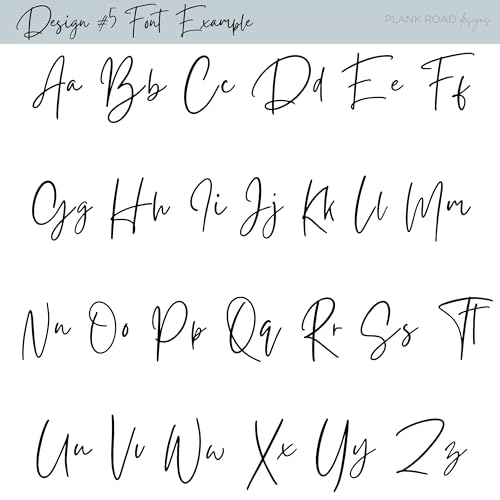 Design #5 Font Example PLANK ROAD designs
Aa Bb Cc Dd Ee Ff
Gg Hh Ii Jj Kk Ll Mm
Nn Oo Pp Qq Rr Ss Tt
Uu Vv Ww Xx Yy Zz